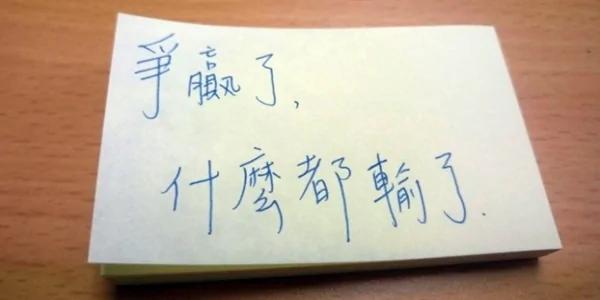 爭贏了,
什麼都輸了.